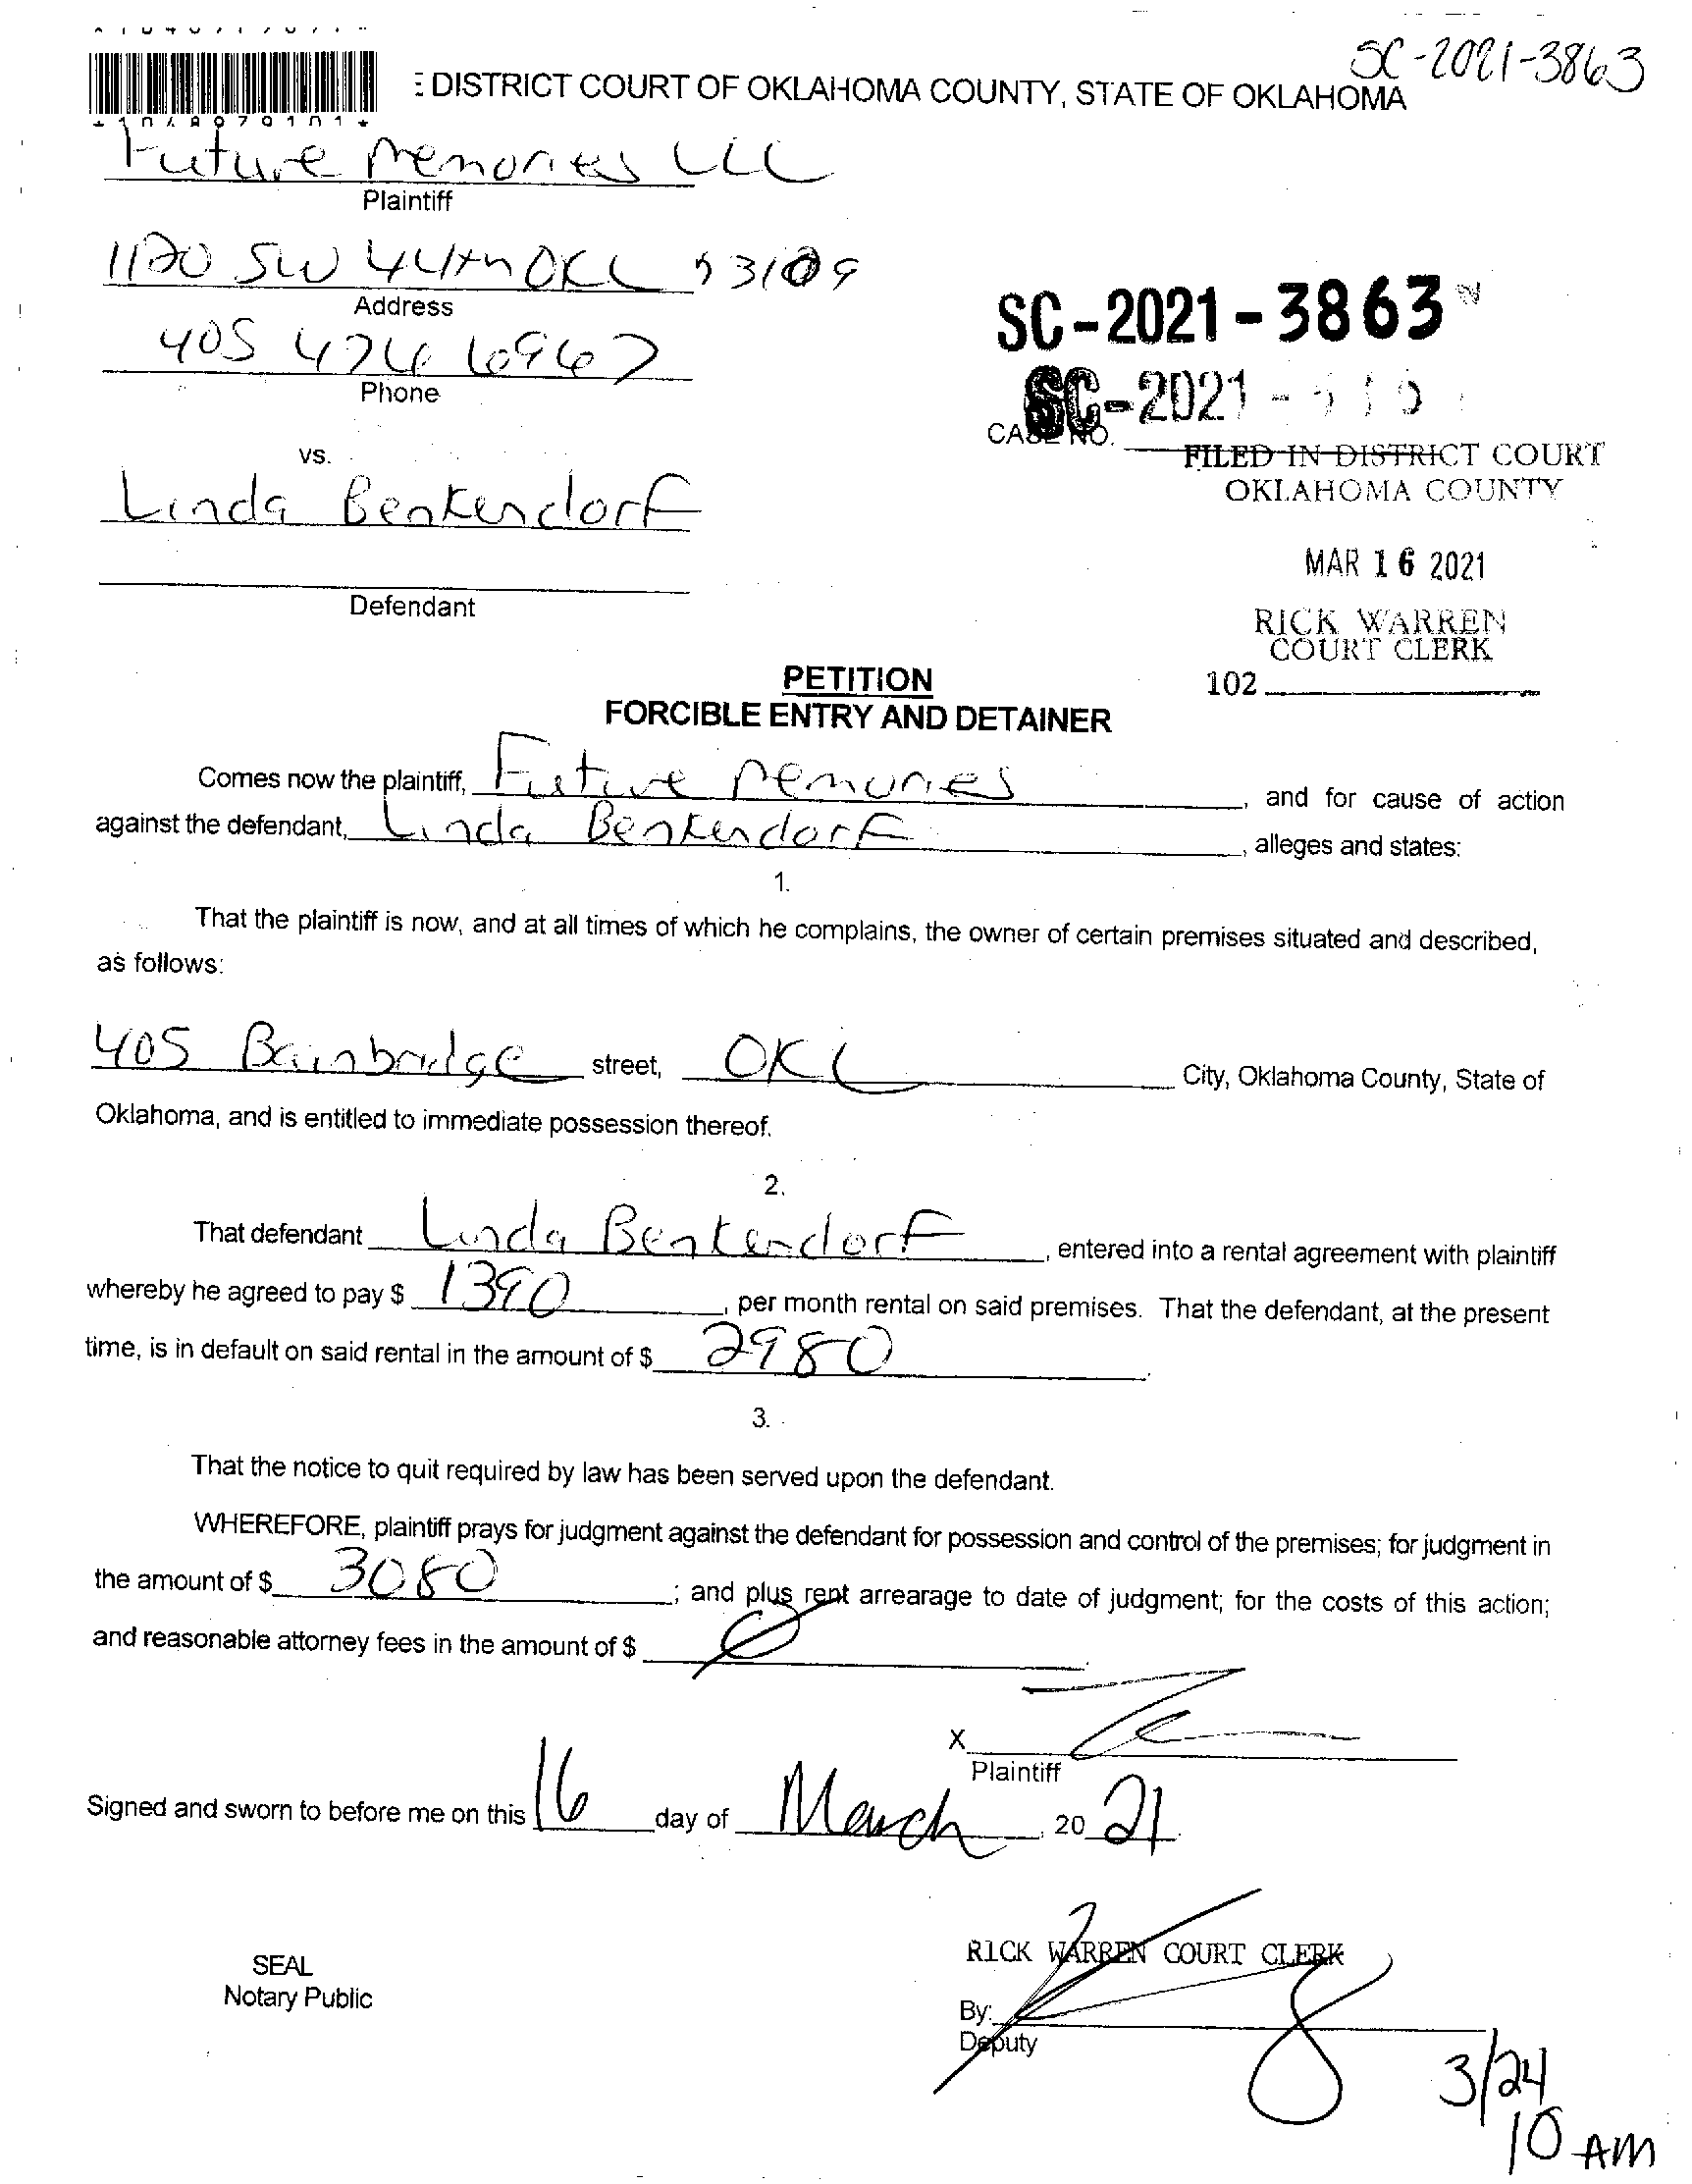 SC-2021-3863
DISTRICT COURT OF OKLAHOMA COUNTY, STATE OF OKLAHOMA
Future Memories LLC
Plaintiff
1120 SW 44th OKC 73109
Address
SC-2021-3863
405 474 6967
Phone
SC-2021-
CASE NO.
vs.
FILED IN DISTRICT COURT
OKLAHOMA COUNTY
Linda Benkendorf
MAR 16 2021
Defendant
RICK WARREN
COURT CLERK
102
PETITION
FORCIBLE ENTRY AND DETAINER
Comes now the plaintiff, Future Memories, and for cause of action
against the defendant, Linda Benkendorf, alleges and states:
1.
That the plaintiff is now, and at all times of which he complains, the owner of certain premises situated and described,
as follows:
405 Bainbridge street, OKC City, Oklahoma County, State of
Oklahoma, and is entitled to immediate possession thereof.
2.
That defendant Linda Benkendorf, entered into a rental agreement with plaintiff
whereby he agreed to pay $ 1390, per month rental on said premises. That the defendant, at the present
time, is in default on said rental in the amount of $ 2980.
3.
That the notice to quit required by law has been served upon the defendant.
WHEREFORE, plaintiff prays for judgment against the defendant for possession and control of the premises; for judgment in
the amount of $ 3080; and plus rent arrearage to date of judgment; for the costs of this action;
and reasonable attorney fees in the amount of $ 0.
X
Plaintiff
Signed and sworn to before me on this 16 day of March, 2021.
RICK WARREN COURT CLERK
SEAL
Notary Public
By:
Deputy
3/24
10 AM